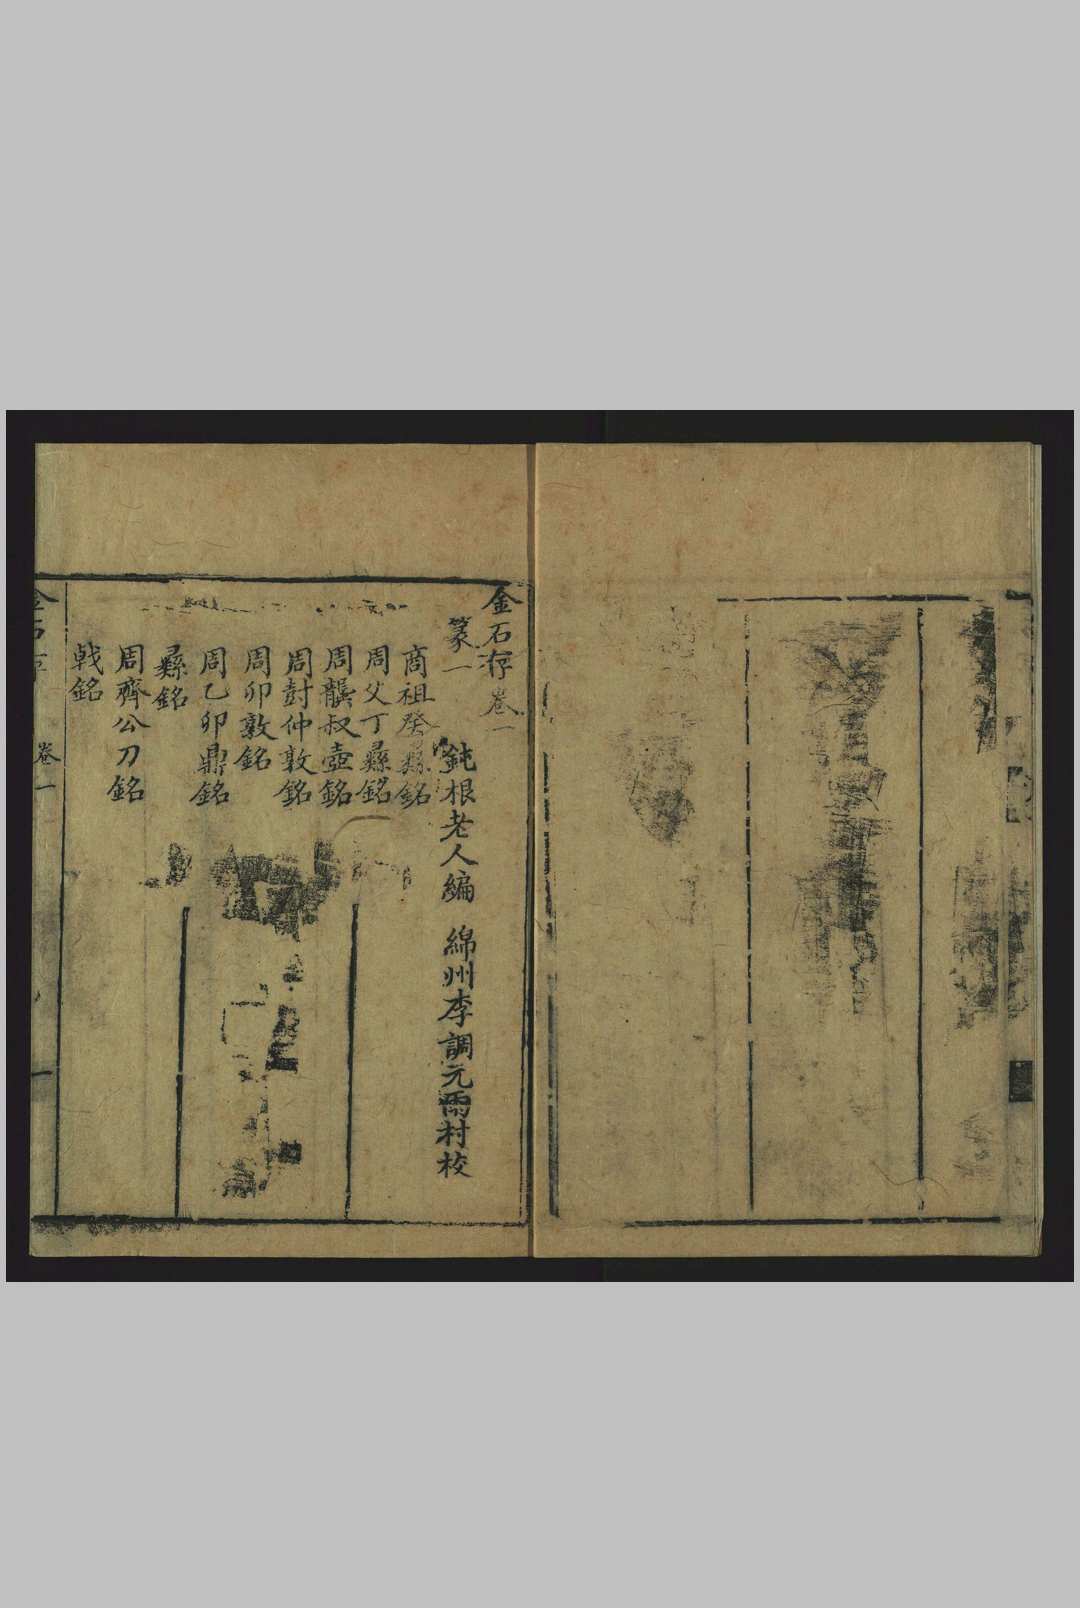 金石存卷一
篆一　鈍根老人編　綿州李調元雨村校
商祖癸彝銘
周父丁彝銘
周龔叔壺銘
周封仲敦銘
周卯敦銘
周乙卯鼎銘
彝銘
周齊公刀銘
戟銘
金石存　卷一　一